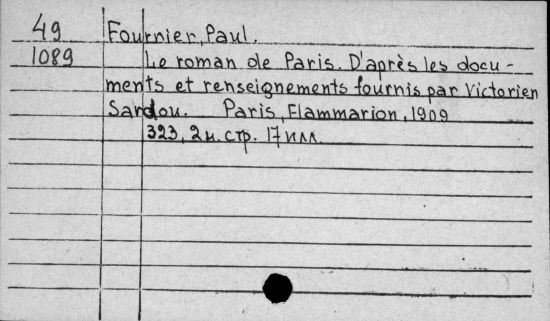 49 Fournier, Paul.
1089 Le roman de Paris. D'après les docu-
ments et renseignements fournis par Victorien
Sardou. Paris, Flammarion, 1909
323, 2 н. стр. 17 илл.